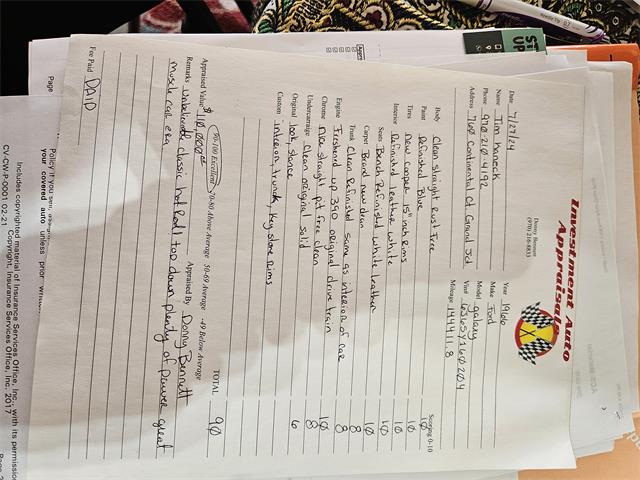 Investment Auto
Appraisals
Donny Bennett
(970) 216-8833
Date 7/27/24
Name Tim Kaneck
Phone 970-210-4192
Address 700 Continental Ct Grand Jct
Year 1966
Make Ford
Model galaxy
Vin# 6J65Y160204
Mileage 144411.8
Scoring 0-10
Body Clean straight Rust Free 10
Paint Refinished Blue 10
Tires New cooper 15" inch Rims 10
Interior Refinished leather white 10
Seats Bench Refinished white leather 10
Carpet Brand new clean 10
Trunk Clean Refinished same as interior of car 8
Engine Freshend up 390 original drive train 8
Chrome Nice straight pit free clean 10
Undercarriage Clean original solid 8
Original look, stance 6
Custom interior, trunk, key stone rims
TOTAL 90
90-100 Excellent 70-89 Above Average 50-69 Average -49 Below Average
Appraised Value $ 110,000.00
Appraised By Donny Bennett
Remarks Unbelievable classic hot Rod! top down plenty of Power great
muscle car era
Fee Paid PAID
Page
Policy if you sell,
your covered auto unless prior
Includes copyrighted material of Insurance Services Office, Inc. with its permission
CV-CW-P-0001 02-21 Copyright, Insurance Services Office, Inc. 2017
Page